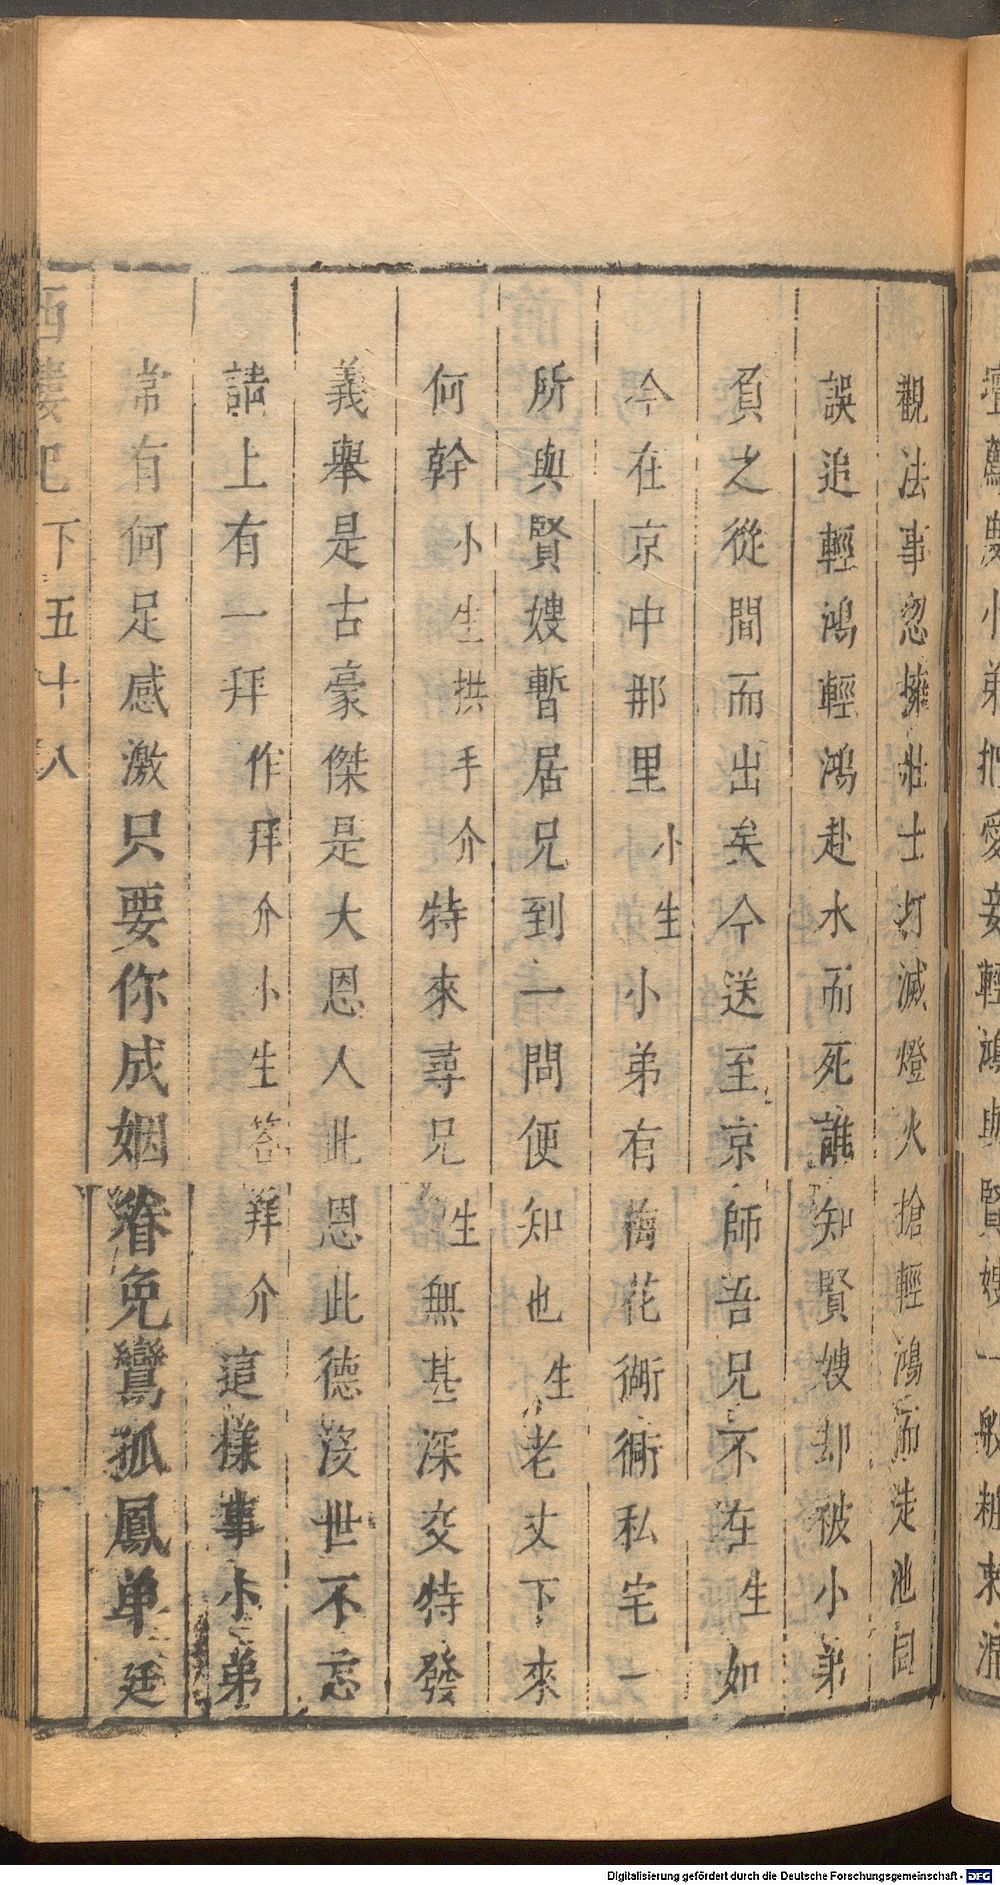 觀法事忽擁壯士打滅燈火搶輕鴻而走池同
誤追輕鴻輕鴻赴水而死誰知賢嫂却被小弟
負之從間而出矣今送至京師吾兄不在生如
今在京中那里小生小弟有梅花衚衕私宅一
所與賢嫂暫居兄到一問便知也生老丈下來
何幹小生拱手介特來尋兄生無甚深交特發
義舉是古豪傑是大恩人此恩此德沒世不忘
請上有一拜作拜介小生答拜介這樣事小弟
常有何足感激只要你成姻眷免鸞孤鳳单廷
西樓記下五十八
Digitalisierung gefördert durch die Deutsche Forschungsgemeinschaft - DFG